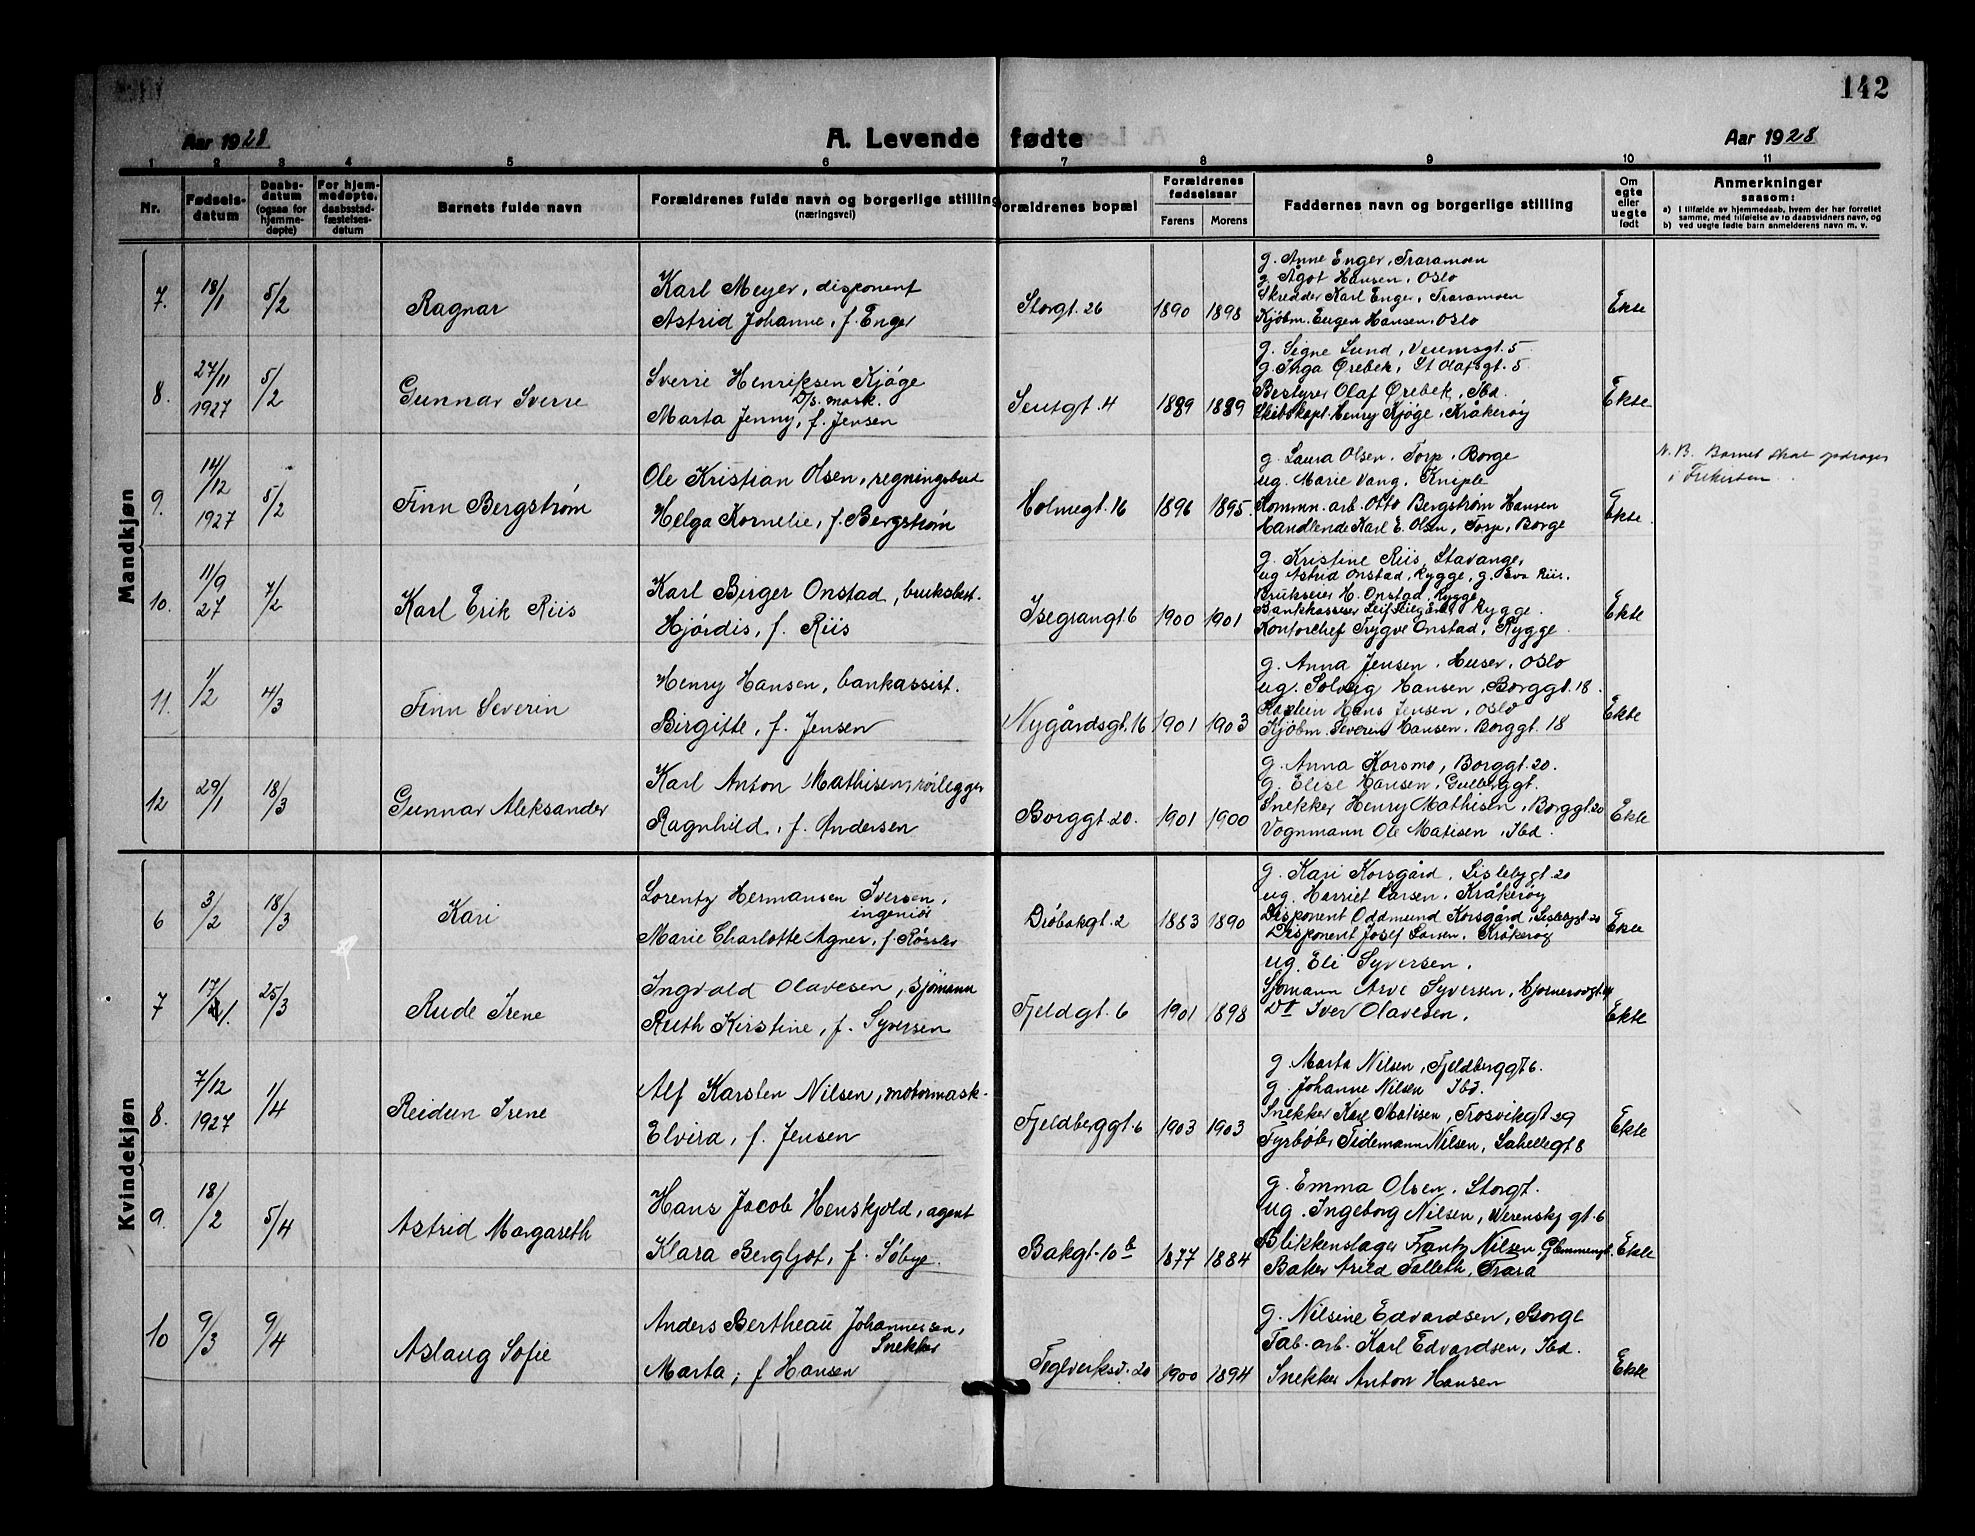 142
Aar 1928
A. Levende fødte
Aar 1928
1 2 3 4 5 6 7 8 9 10 11
Nr.
Fødsels-
datum
Daabs-
datum
(ogsaa for
hjemme-
døpte)
For hjem-
medøpte,
daabsstad-
fæstelses-
datum
Barnets fulde navn
Forældrenes fulde navn og borgerlige stilling
(næringsvei)
Forældrenes bopæl
Forældrenes
fødselsaar
Farens Morens
Faddernes navn og borgerlige stilling
Om
egte
eller
uegte
født
Anmerkninger
saasom:
a) i tilfælde av hjemmedaab, hvem der har forrettet
samme, med tilføielse av to daabsvidners navn, og
b) ved uegte fødte barn anmelderens navn m. v.
Mandkjøn
7. 18/1 5/2
Ragnar
Karl Meyer, disponent
Astrid Johanne, f. Enger
Storgt. 26
1890 1898
g. Anne Enger, Traramoen
g. Ågot Hansen, Oslo
Skredder Karl Enger, Traramoen
Kjøbm. Eugen Hansen, Oslo
Ekte
8. 27/11 1927 5/2
Gunnar Sverre
Sverre Henriksen Kjøge
D/s. mask.
Marta Jenny, f. Jensen
4
1889 1889
g. Signe Lund, 5.
g. Inga Ørebek, St Olafsgt. 5
Bestyrer Olaf Ørebek, Ibd.
Skibskapt. Henry Kjøge, Kråkerøy
Ekte
9. 14/12 1927 5/2
Finn Bergstrøm
Ole Kristian Olsen, regningsbud
Helga Kornelie, f. Bergstrøm
Holmegt. 16
1896 1895.
g. Laura Olsen. Torp, Borge
ug. Marie Vang, Kniple
Kommn. arb. Otto Bergstrøm Hansen
Handlende Karl E. Olsen, Torp, Borge
Ekte
N. B. Barnet skal opdrages
i Frikirken
10. 11/9 27 7/2
Karl Erik Riis
Karl Birger Onstad, bruksbest.
Hjørdis, f. Riis
Isegrangt. 6
1900 1901
g. Kristine Riis, Stavange,
ug Astrid Onstad, Rygge, g. Eva Riis.
Brukseier H. Onstad, Rygge,
Bankkasserer Leif Rygge.
Kontorchef Trygve Onstad, Rygge
Ekte
11. 1/2 4/3
Finn Severin
Henry Hansen, bankassist.
Birgitte, f. Jensen
Nygårdsgt. 16
1901 1903
g. Anna Jensen, Huser, Oslo
ug. Solveig Hansen, Borggt. 18.
Kaptein Hans Jensen, Oslo
Kjøbm. Severin Hansen, Borggt. 18
Ekte
12 29/1 18/3
Gunnar Aleksander
Karl Anton Mathisen, rørlegger
Ragnhild, f. Andersen
Borggt. 20.
1901 1900
g. Anna Korsmo, Borggt. 20.
g. Elise Hansen, Gulberggt.
Snekker Henry Mathisen, Borggt. 20
Vognmann Ole Matisen, Ibd.
Ekte
Kvindekjøn
6 3/2 18/3
Kari
Lorentz Hermansen Iversen,
ingeniør
Marie Charlotte Agnes, f. Røssler
Drøbakgt. 2
1883 1890
g. Kari Korsgård, Lislebygt. 20
ug. Harriet Larsen, Kråkerøy
Disponent Oddmund Korsgård, Lislebygt. 20
Disponent Josef Larsen, Kråkerøy
Ekte
7 17/1. 25/3
Rude Irene
Ingvald Olavesen, sjømann
Ruth Kirstine, f. Syversen
Fjeldgt. 6
1901 1898
ug. Eli Syversen,
Sjømann Arve Syversen,
Dt Iver Olavesen,
Ekte
8. 7/12 1927 1/4
Reidun Irene
Alf Karsten Nilsen, motormask.
Elvira, f. Jensen
Fjeldberggt. 6
1903 1903
g. Marta Nilsen, Fjeldberggt 6.
g. Johanne Nilsen Ibd.
Snekker Karl Matisen, Trosvikgt 29
Fyrbøter Tidemann Nilsen, Lahellegt 8
Ekte
9. 18/2 5/4
Astrid Margareth
Hans Jacob Henskjold, agent
Klara Bergljot, f. Søbye.
Bakgt. 10 b
1877 1884
g. Emma Olsen, Storgt.
ug. Ingeborg Nilsen, Werenskj gt. 6
Blikkenslager Frantz Nilsen, Glemmengt.
Baker Arild Talleth, Trara
Ekte
10 9/3 9/4
Aslaug Sofie
Anders Bertheau Johannessen,
Snekker
Marta, f Hansen
Teglverksv. 20
1900 1894
g. Nilsine Edvardsen, Borge
Fab. arb. Karl Edvardsen, Ibd.
Snekker Anton Hansen
Ekte